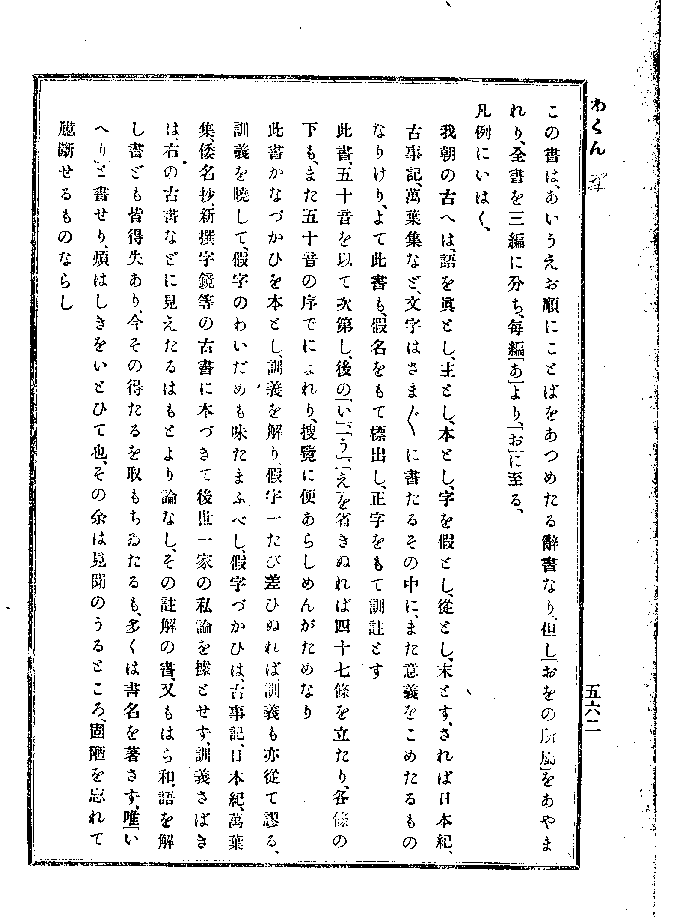 わくん
五六二
この書は、あいうえお順にことばをあつめたる辭書なり、但し「おをの所屬」をあやま
れり、全書を三編に分ち、每編「あ」より、「お」に至る、
凡例にいはく、
我朝の古へは、語を眞とし、主とし、本とし、字を假とし、從とし、末とす、されば日本紀、
古事記、萬葉集など、文字はさま〴〵に書たるその中に、また意義をこめたるもの
なりけり、よて此書も、假名をもて標出し、正字をもて訓註とす
此書、五十音を以て次第し、後の「い」「う」「え」を省きぬれば四十七條を立たり、各條の
下も、また五十音の序でによれり、搜覽に便あらしめんがためなり
此書かなづかひを本とし、訓義を解り假字一たび差ひぬれば訓義も亦從て謬る、
訓義を曉して、假字のわいだめも味たまふべし、假字づかひは、古事記、日本紀、萬葉
集、倭名抄、新撰字鏡等の古書に本づきて後世一家の私論を據とせず、訓義さばき
は、右の古書などに見えたるはもとより論なし、その註解の書、又もはら和語を解
し書ども皆得失あり、今その得たるを取もちゐたるも、多くは書名を著さず、唯「い
へり」と書せり、煩はしきをいとひて也、その余は見聞のうるところ、固陋を忘れて
臆斷せるものならし